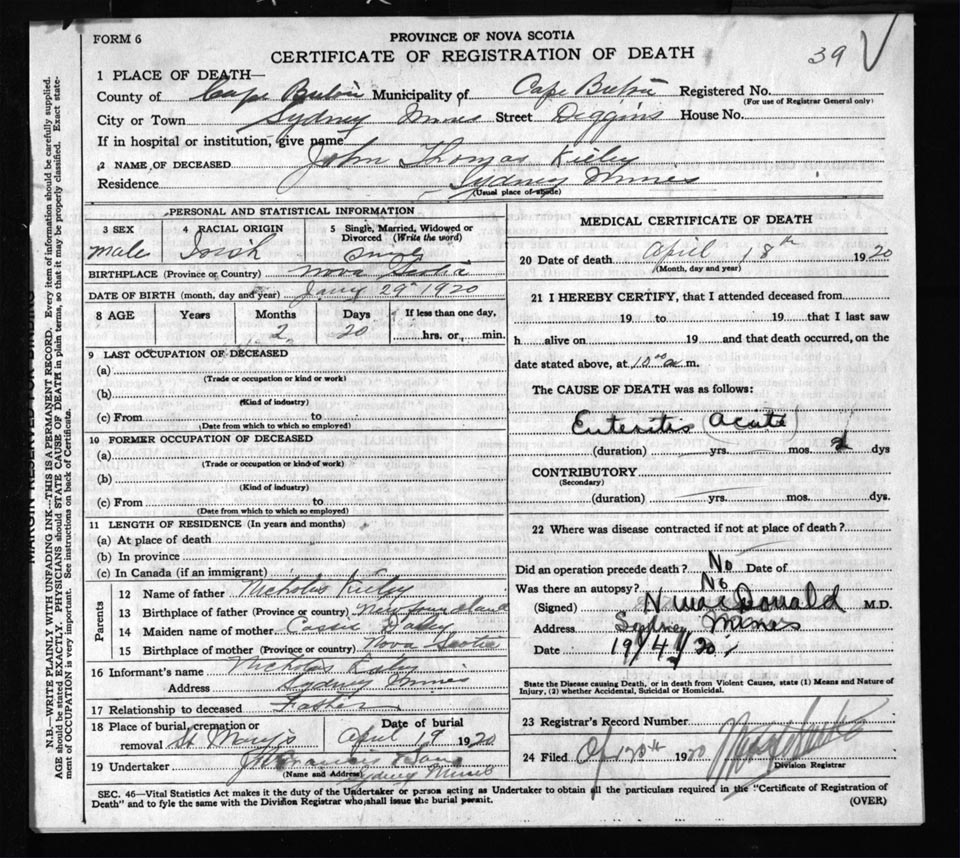 FORM 6
PROVINCE OF NOVA SCOTIA
CERTIFICATE OF REGISTRATION OF DEATH
39
1 PLACE OF DEATH—
County of Cape Breton Municipality of Cape Breton Registered No.
(For use of Registrar General only)
City or Town Sydney Mines Street Diggins House No.
If in hospital or institution, give name
2 NAME OF DECEASED John Thomas Kieley
Residence Sydney Mines
(Usual place of abode)
PERSONAL AND STATISTICAL INFORMATION
3 SEX 4 RACIAL ORIGIN 5 Single, Married, Widowed or
Divorced (Write the word)
Male Irish Single
BIRTHPLACE (Province or Country) Nova Scotia
DATE OF BIRTH (month, day and year) Jany 29 1920
8 AGE Years Months Days If less than one day,
2 20 hrs. or min.
9 LAST OCCUPATION OF DECEASED
(a)
(Trade or occupation or kind or work)
(b)
(Kind of industry)
(c) From to
(Date from which to which so employed)
10 FORMER OCCUPATION OF DECEASED
(a)
(Trade or occupation or kind of work)
(b)
(Kind of industry)
(c) From to
(Date from which to which so employed)
11 LENGTH OF RESIDENCE (In years and months)
(a) At place of death
(b) In province
(c) In Canada (if an immigrant)
Parents
12 Name of father Nicholas
13 Birthplace of father (Province or country) Newfoundland
14 Maiden name of mother Cassie
15 Birthplace of mother (Province or country) Nova Scotia
16 Informant's name Nicholas
Address Sydney Mines
17 Relationship to deceased Father
18 Place of burial, cremation or Date of burial
removal St Mary's April 19 1920
19 Undertaker & Sons
(Name and Address) Sydney Mines
MEDICAL CERTIFICATE OF DEATH
20 Date of death April 18th 1920
(Month, day and year)
21 I HEREBY CERTIFY, that I attended deceased from
19 to 19 that I last saw
h alive on 19 and that death occurred, on the
date stated above, at 10 a m.
The CAUSE OF DEATH was as follows:
Enteritis (acute)
(duration) yrs. mos. 2 dys
CONTRIBUTORY
(Secondary)
(duration) yrs. mos. dys.
22 Where was disease contracted if not at place of death?
Did an operation precede death? No Date of
Was there an autopsy? No
(Signed) MacDonald M.D.
Address Sydney Mines
Date 19/4/20
State the Disease causing Death, or in death from Violent Causes, state (1) Means and Nature of
Injury, (2) whether Accidental, Suicidal or Homicidal.
23 Registrar's Record Number
24 Filed 1920
Division Registrar
SEC. 46—Vital Statistics Act makes it the duty of the Undertaker or person acting as Undertaker to obtain all the particulars required in the "Certificate of Registration of
Death" and to fyle the same with the Division Registrar who shall issue the burial permit. (OVER)
MARGIN RESERVED FOR BINDING
N.B.—WRITE PLAINLY WITH UNFADING INK—THIS IS A PERMANENT RECORD. Every item of information should be carefully supplied.
AGE should be stated EXACTLY. PHYSICIANS should STATE CAUSE OF DEATH in plain terms, so that it may be properly classified. Exact state-
ment of OCCUPATION is very important. See instructions on back of Certificate.